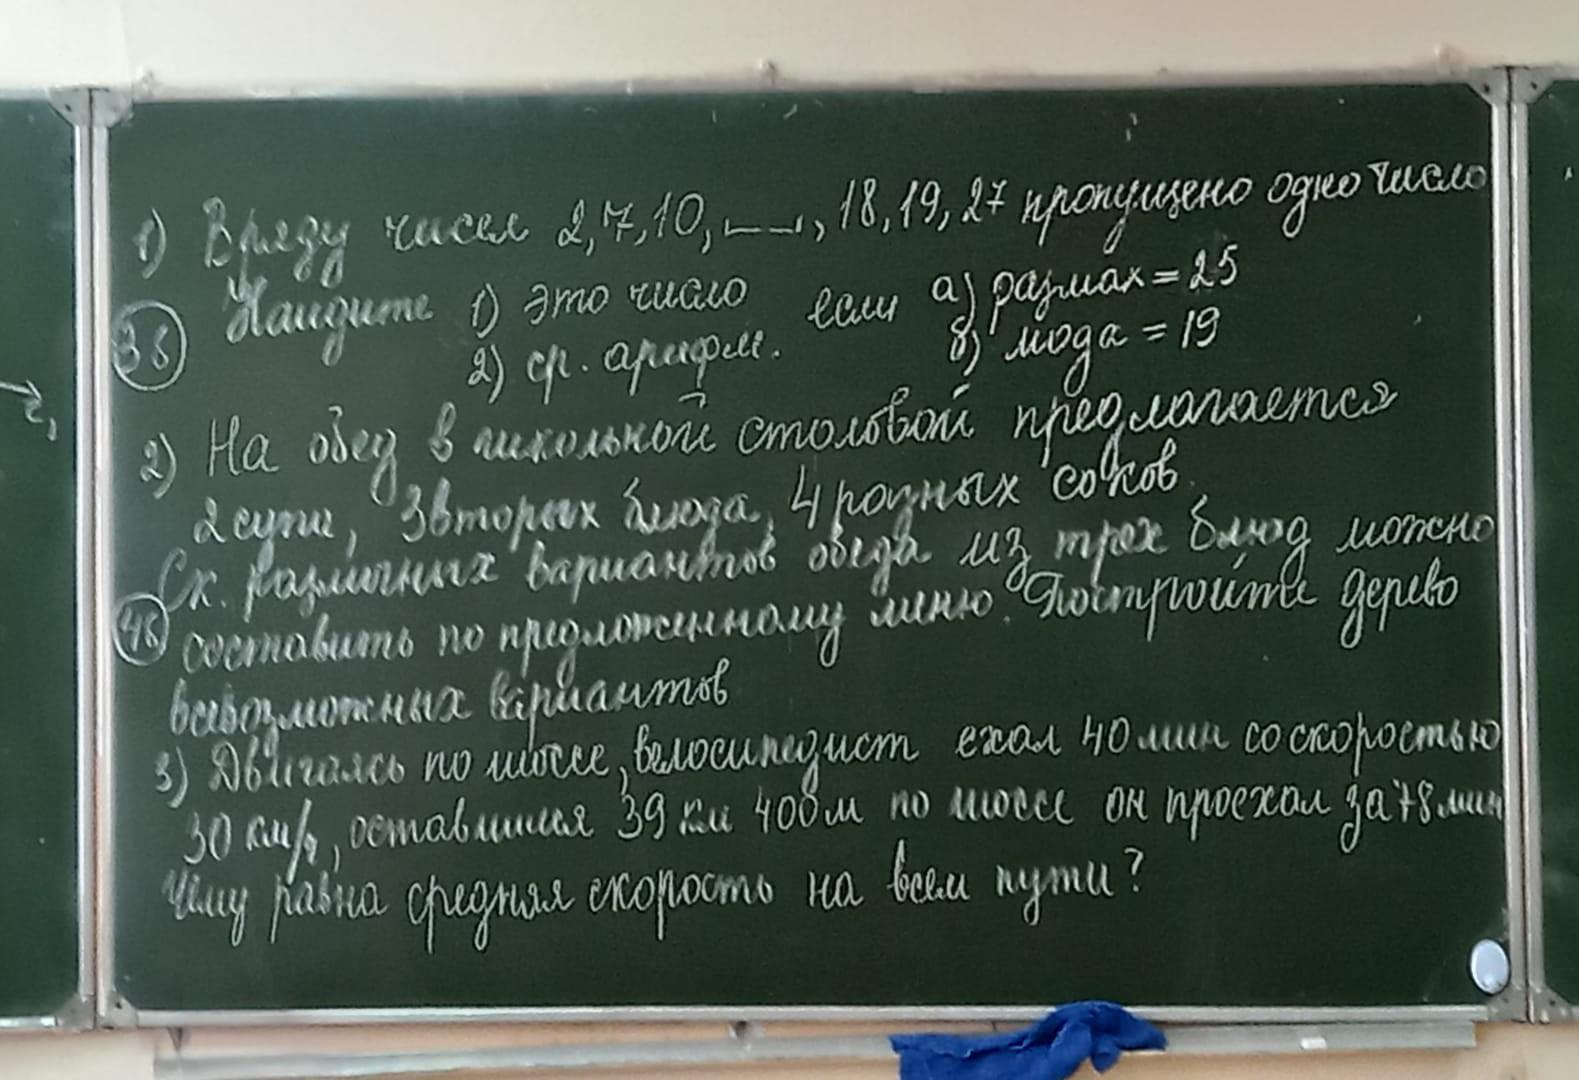 1) В ряду чисел 2, 7, 10, __, 18, 19, 27 пропущено одно число
3б Найдите 1) это число если а) размах = 25
2) ср. арифм. б) мода = 19
2) На обед в школьной столовой предлагается
2 супа, 3 вторых блюда, 4 разных соков.
Ск. различных вариантов обеда из трех блюд можно
4б составить по предложенному меню. Постройте дерево
всевозможных вариантов
3) Двигаясь по шоссе, велосипедист ехал 40 мин со скоростью
30 км/ч, оставшиеся 39 км 400 м по шоссе он проехал за 78 мин
Чему равна средняя скорость на всем пути?